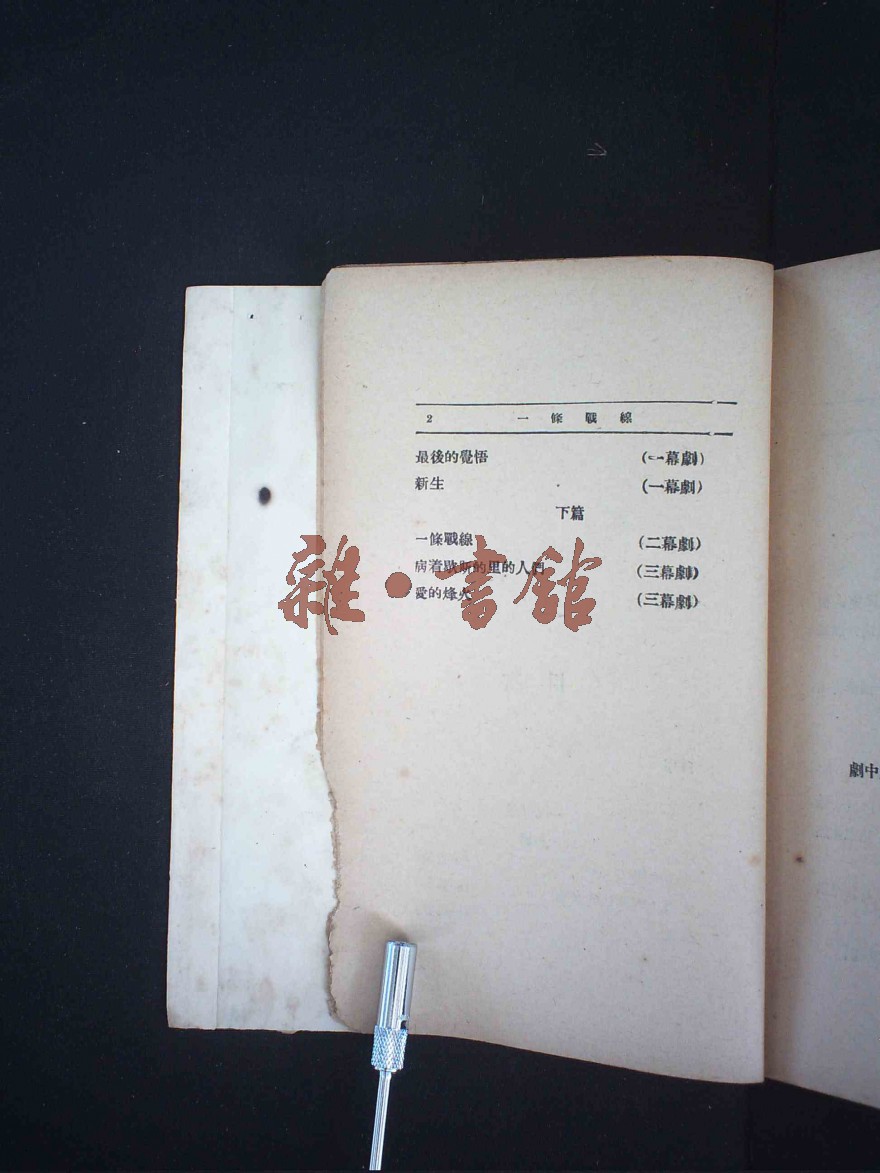 2 一條戰線
最後的覺悟 (一幕劇)
新生 (一幕劇)
下篇
一條戰線 (二幕劇)
病着歇斯的里的人們 (三幕劇)
愛的烽火 (三幕劇)
雜·書館
劇中